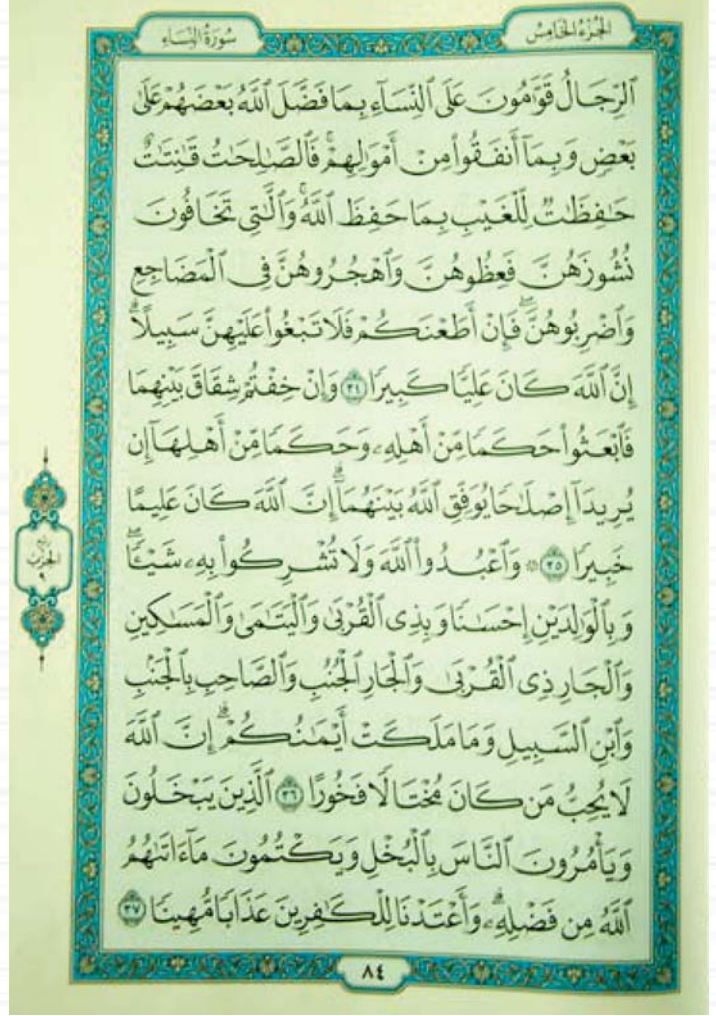 الجزء الخامس
سورة النساء
ٱلرِّجَالُ قَوَّٰمُونَ عَلَى ٱلنِّسَآءِ بِمَا فَضَّلَ ٱللَّهُ بَعْضَهُمْ عَلَىٰ
بَعْضٍ وَبِمَآ أَنفَقُوا۟ مِنْ أَمْوَٰلِهِمْ ۚ فَٱلصَّٰلِحَٰتُ قَٰنِتَٰتٌ
حَٰفِظَٰتٌ لِّلْغَيْبِ بِمَا حَفِظَ ٱللَّهُ ۚ وَٱلَّٰتِى تَخَافُونَ
نُشُوزَهُنَّ فَعِظُوهُنَّ وَٱهْجُرُوهُنَّ فِى ٱلْمَضَاجِعِ
وَٱضْرِبُوهُنَّ ۖ فَإِنْ أَطَعْنَكُمْ فَلَا تَبْغُوا۟ عَلَيْهِنَّ سَبِيلًا ۗ
إِنَّ ٱللَّهَ كَانَ عَلِيًّا كَبِيرًا ٣٤ وَإِنْ خِفْتُمْ شِقَاقَ بَيْنِهِمَا
فَٱبْعَثُوا۟ حَكَمًا مِّنْ أَهْلِهِۦ وَحَكَمًا مِّنْ أَهْلِهَآ إِن
يُرِيدَآ إِصْلَٰحًا يُوَفِّقِ ٱللَّهُ بَيْنَهُمَآ ۗ إِنَّ ٱللَّهَ كَانَ عَلِيمًا
خَبِيرًا ٣٥ ۞ وَٱعْبُدُوا۟ ٱللَّهَ وَلَا تُشْرِكُوا۟ بِهِۦ شَيْـًٔا ۖ
وَبِٱلْوَٰلِدَيْنِ إِحْسَٰنًا وَبِذِى ٱلْقُرْبَىٰ وَٱلْيَتَٰمَىٰ وَٱلْمَسَٰكِينِ
وَٱلْجَارِ ذِى ٱلْقُرْبَىٰ وَٱلْجَارِ ٱلْجُنُبِ وَٱلصَّاحِبِ بِٱلْجَنۢبِ
وَٱبْنِ ٱلسَّبِيلِ وَمَا مَلَكَتْ أَيْمَٰنُكُمْ ۗ إِنَّ ٱللَّهَ
لَا يُحِبُّ مَن كَانَ مُخْتَالًا فَخُورًا ٣٦ ٱلَّذِينَ يَبْخَلُونَ
وَيَأْمُرُونَ ٱلنَّاسَ بِٱلْبُخْلِ وَيَكْتُمُونَ مَآ ءَاتَىٰهُمُ
ٱللَّهُ مِن فَضْلِهِۦ ۗ وَأَعْتَدْنَا لِلْكَٰفِرِينَ عَذَابًا مُّهِينًا ٣٧
ربع
الحزب
٩
٨٤